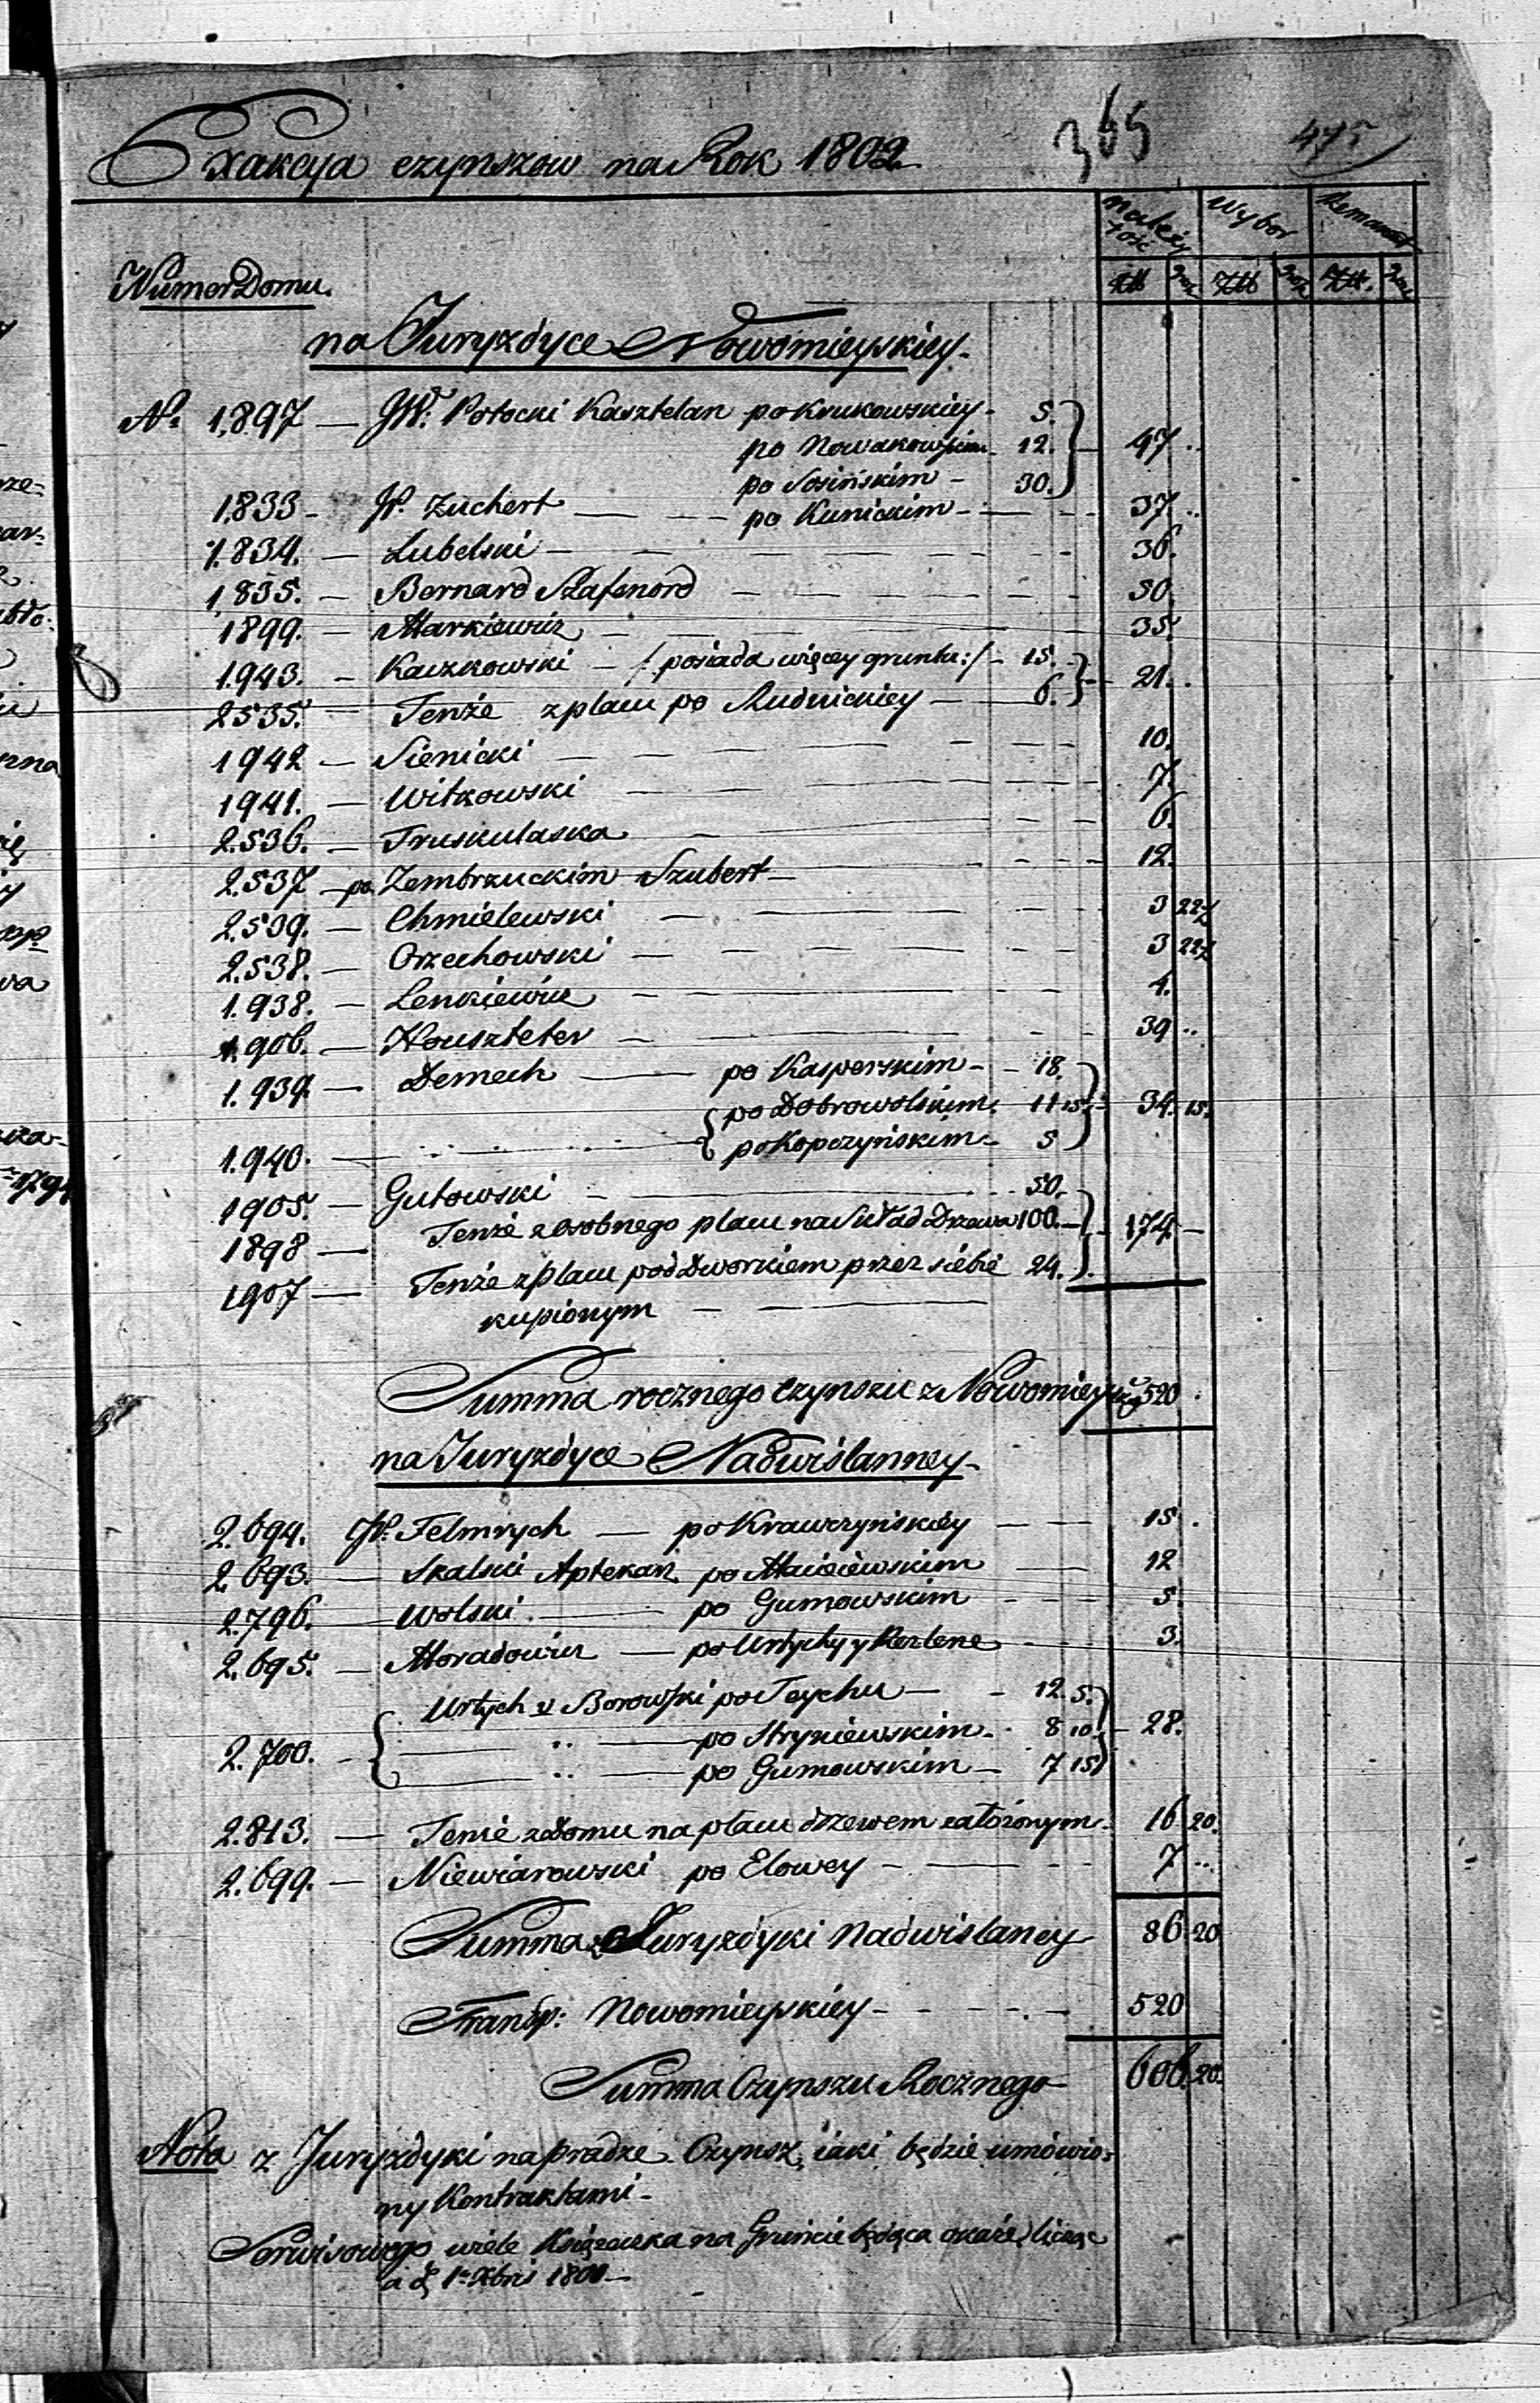 365 475
Exakcya czynszow na Rok 1802
należy Wybor Remanent
tość
Numer Domu. Złł gro Złł gro Złł. gro
na Juryzdyce Nowomieyskiey.
No 1,897 — JW: Potocki Kasztelan po Krukowskiey - 5.
po Nowakowskim - 12. 47 ..
po Sosińskim - 30.
1,833 - JP. Zuchert — — po Kunickim - — - 37 ..
1.834. — Lubelski — 36.
1,835. — Bernard Szafenord — 50.
1899. — Markiewicz — 35.
1.943. — Kaczkowski — /: posiada więcey gruntu :/ - 15. 21. .
2535. — Tenże z placu po Rudnickiey — 6.
1942 — Sienicki — 10.
1941. — Witkowski — 7.
2.536. — Truskulaska — 6.
2.537 — po Zembrzuckim Szubert — 12.
2.539. — Chmielewski — 3 22½
2.538. — Orzechowski — 3 22½
1.938. — Lenkiewicz — 4.
1.906. — Houszteter — 39 ..
1.939. — Demech — po Kasperskim - - 18.
po Dobrowolskim. 11 15. 34. 15.
1.940. — po Kopczyńskim - 5
1905. — Gutowski — 50.
1898 — Tenże z osobnego placu na Skład Drzewa 100. — 174. —
1907 — Tenże z placu pod Dworkiem przez siebie 24.
kupionym — —
Summa rocznego czynszu z Nowomieyskiey 520 .
na Juryzdyce Nadwiślanney -
2.694. JP. Felmrych — po Krawczyńskiey — — 15 .
2.693. — Skalski Aptekarz po Maciewskim — 12
2.796. — Wolski. — po Gumowskim — 5.
2.695. — Moradowicz — po Urtychy y Kezlene — 3.
Urtych y Borowski po Teychu — - 12. 5.
2.700. — .. — po Stryniewskim. 8 10. — 28.
— .. — po Gumowskim — 7 15
2.813. — Tenże z Domu na placu drzewem załozonym. 16 20.
2.699. — Niewiarowski po Elowey — 7 ..
Summa Juryzdyki Nadwislaney 86 20
Transp: Nowomieyskiey - - - - 520
Summa Czynszu Rocznego 606. 20.
Nota z Juryzdyki na pradze Czynsz, iaki będzie umówio=
ny Kontraktami -
Serwisowego wiele Książeczka na Gruncie będąca okaże, licząc
a d 1a Xbris 1801 —